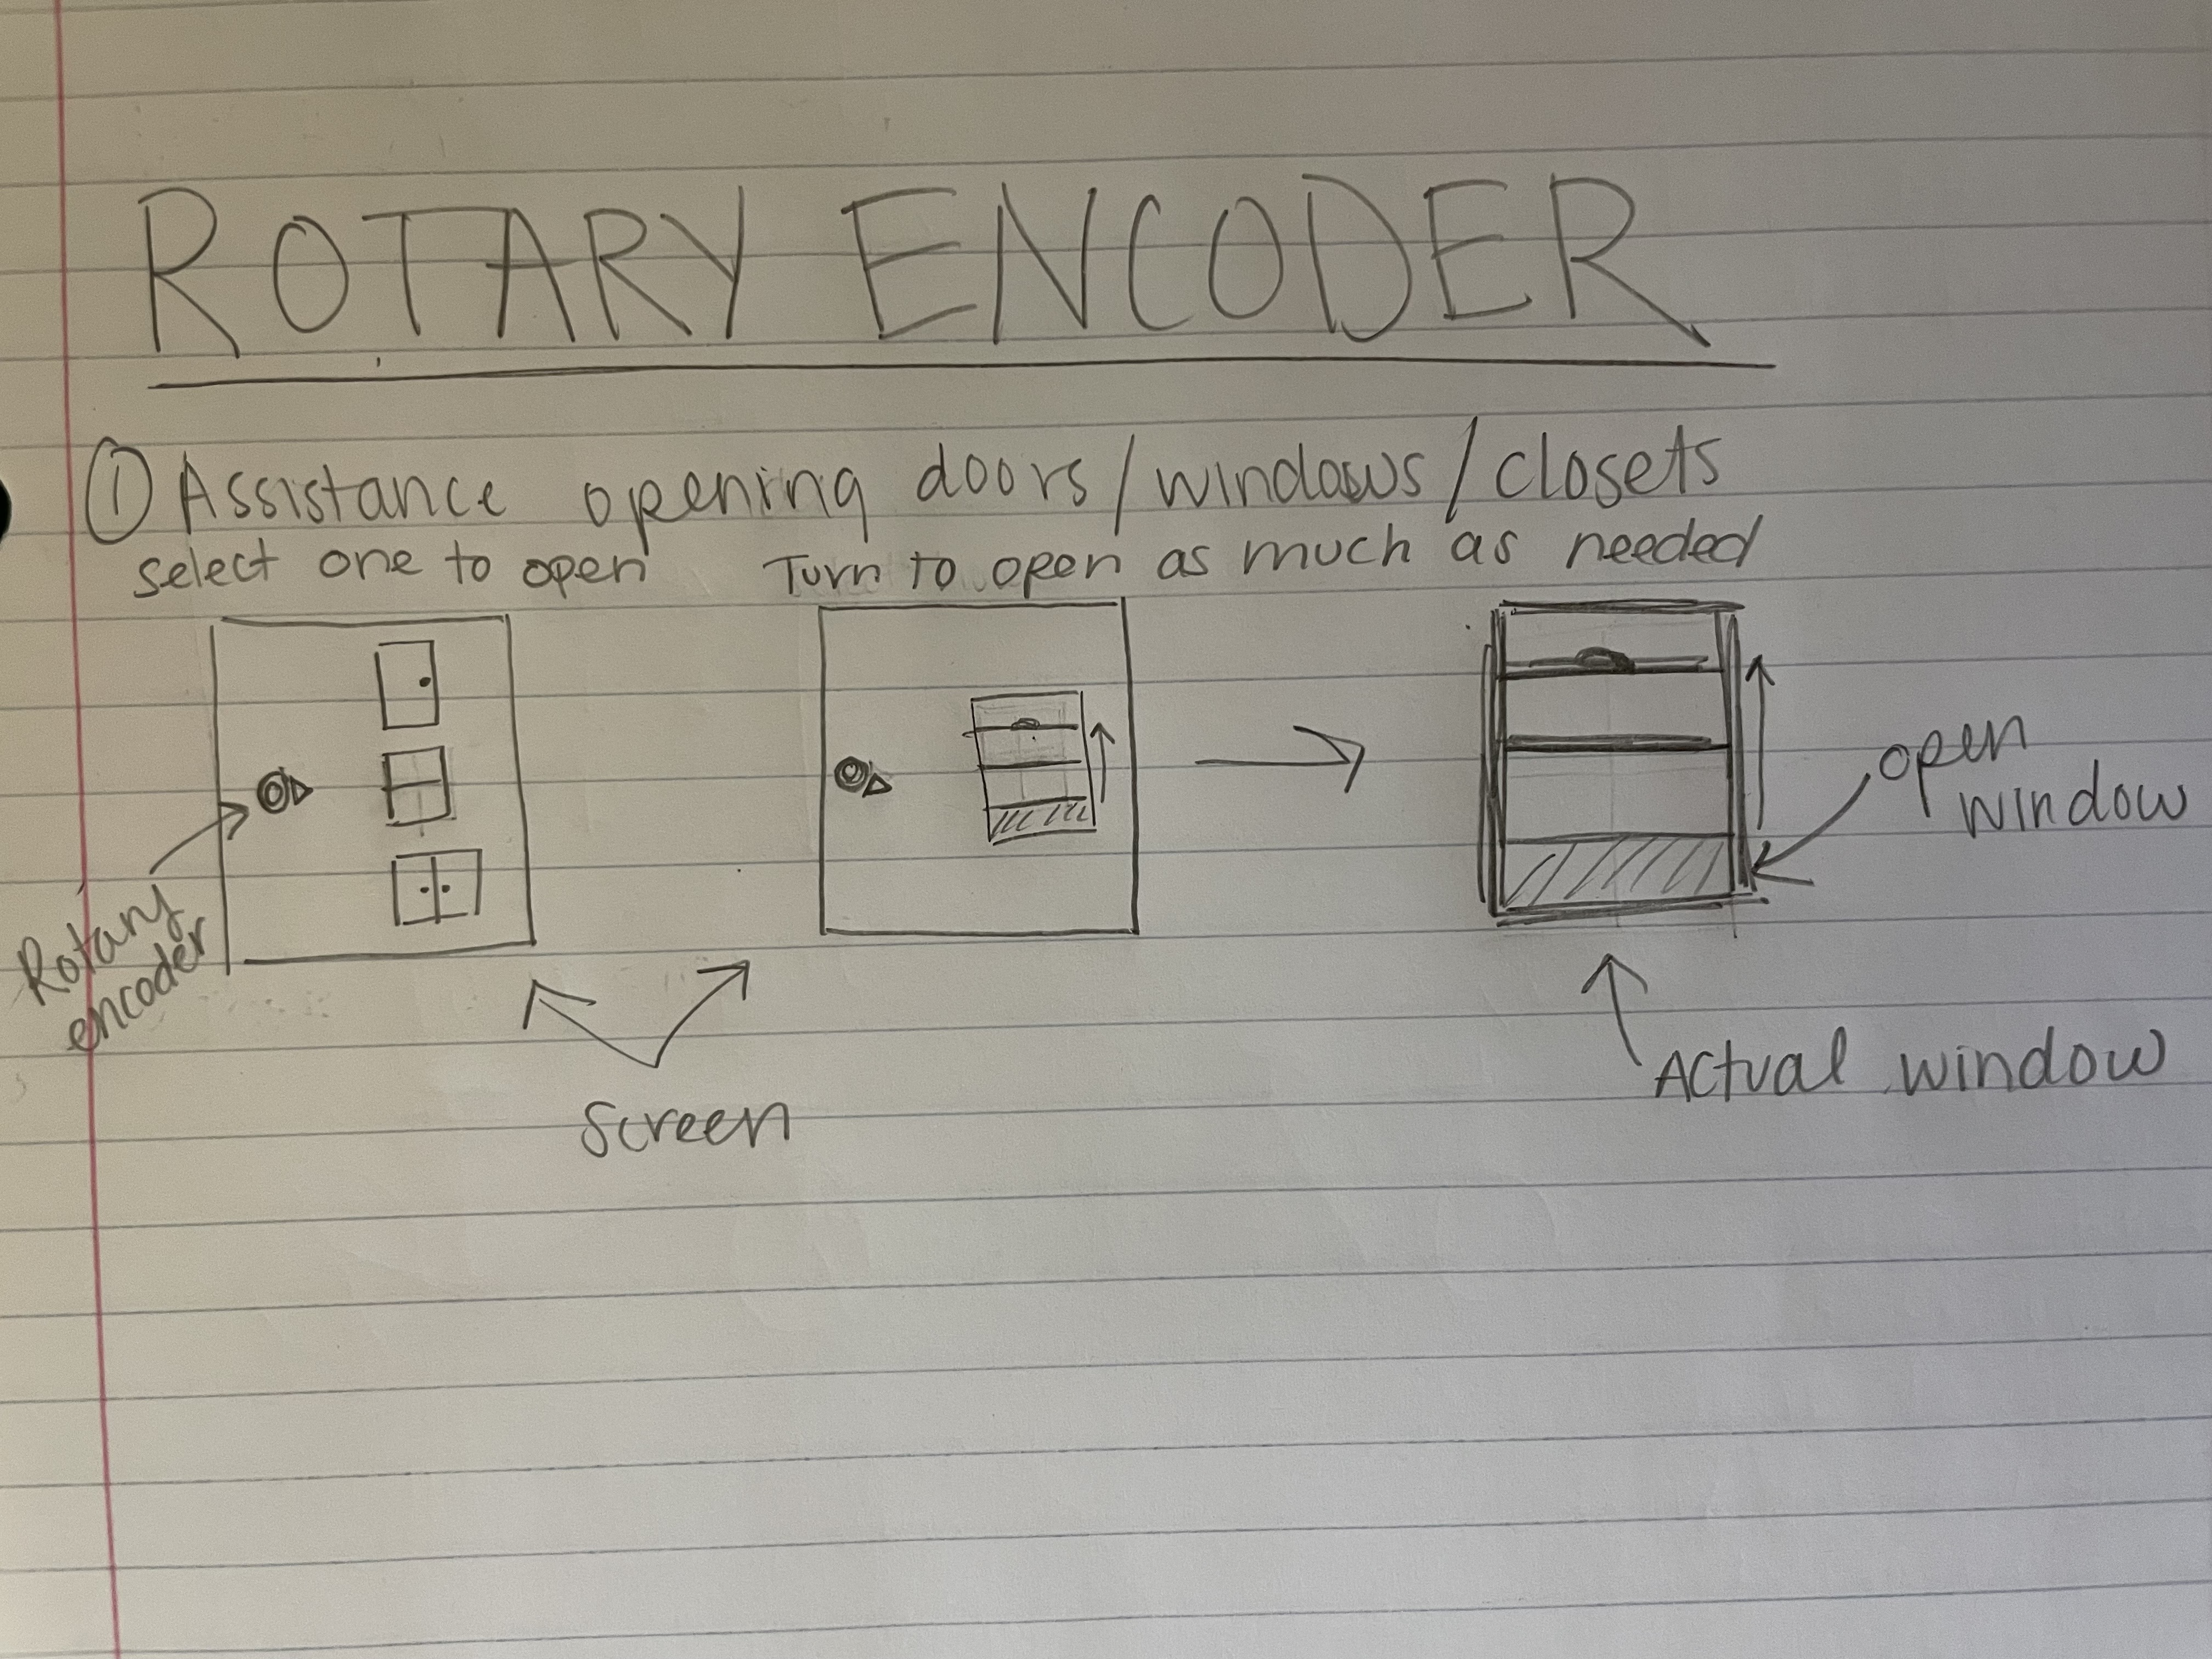 ROTARY ENCODER
① Assistance opening doors/windows/closets
select one to open
Turn to open as much as needed
Rotary
encoder
Screen
open
window
Actual window